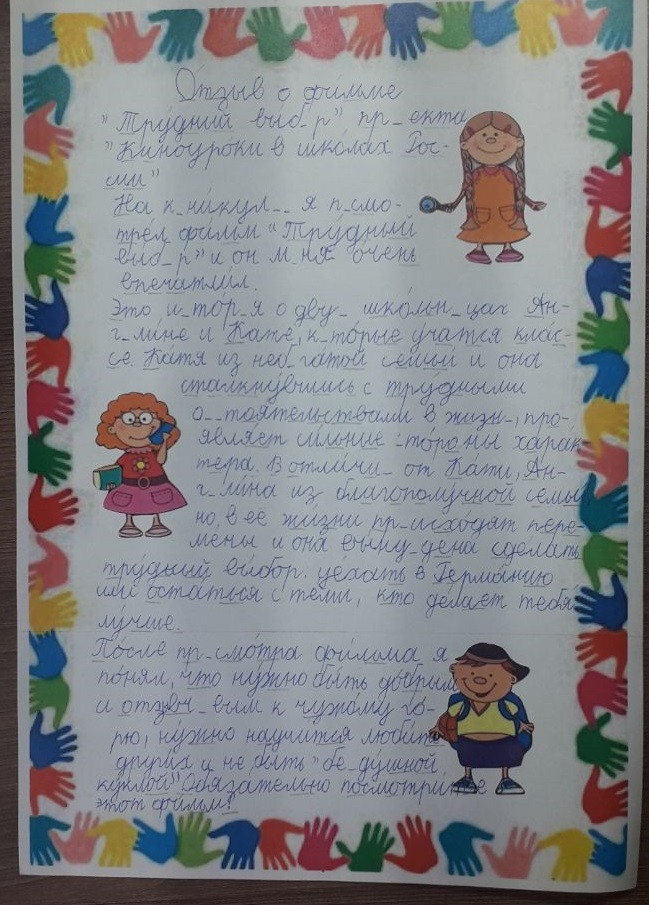 Отзыв о фильме
"Трудний выб_р" пр_екта
"Киноуроки в школах Рос-
сии"
На к_никул_ _ я п_смо-
трел фильм "Трудный
выб_р" и он м_ня очень
впечатлил.
Это и_тор_я о дву_ школьн_цах Ан-
г_лине и Кате, к_торые учатся клас-
се. Катя из неб_гатой семьи и она
сталкнувшись с трудными
о_ _тоятельствами в жизн_, про-
являет сильные _тороны харак
тера. В отличи_ от Кати, Ан-
г_лина из благополучной семьи
но, в её жизни пр_исходят пере-
мены и она выну_дена сделать
трудный выбор: уехать в Германию
или остаться с теми, кто делает тебя
лучше.
После пр_смотра фильма я
понял, что нужно быть добрым
и отзыв_вым к чужому го-
рю, нужно научится любить
других и не быть "бе_душной
куклой". Обязательно посмотрите
этот фильм!